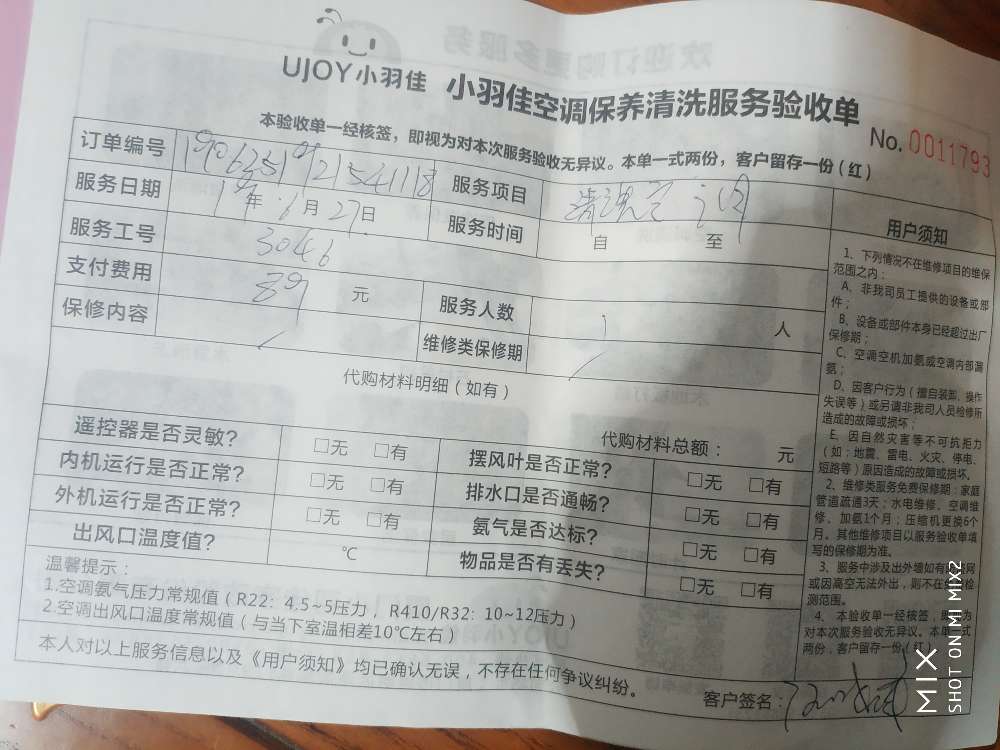 UJOY小羽佳 小羽佳空调保养清洗服务验收单
No. 0011793
本验收单一经核签，即视为对本次服务验收无异议。本单一式两份，客户留存一份（红）
订单编号 服务项目
服务日期 19年 6月 27日 服务时间 自 至
服务工号 3046
支付费用 89 元 服务人数 1 人
保修内容 / 维修类保修期 /
代购材料明细（如有）
代购材料总额： 元
遥控器是否灵敏？ □无 □有 摆风叶是否正常？ □无 □有
内机运行是否正常？ □无 □有 排水口是否通畅？ □无 □有
外机运行是否正常？ □无 □有 氨气是否达标？ □无 □有
出风口温度值？ ℃ 物品是否有丢失？ □无 □有
温馨提示：
1.空调氨气压力常规值（R22: 4.5~5压力，R410/R32: 10~12压力）
2.空调出风口温度常规值（与当下室温相差10℃左右）
本人对以上服务信息以及《用户须知》均已确认无误，不存在任何争议纠纷。
客户签名：
用户须知
1、下列情况不在维修项目的维保
范围之内：
A、非我司员工提供的设备或部
件；
B、设备或部件本身已经超过出厂
保修期；
C、空调空机加氨或空调内部漏
氨；
D、因客户行为（擅自装卸、操作
失误等）或另请非我司人员检修所
造成的故障或损坏；
E、因自然灾害等不可抗拒力
（如：地震、雷电、火灾、停电、
短路等）原因造成的故障或损坏。
2、维修类服务免费保修期：家庭
管道疏通3天；水电维修、空调维
修、加氨1个月；压缩机更换6个
月。其他维修项目以服务验收单填
写的保修期为准。
3、服务中涉及出外墙如有防盗网
或因高空无法外出，则不在检
测范围。
4、本验收单一经核签，即视为
对本次服务验收无异议。本单一式
两份，客户留存一份（红）
MIX
SHOT ON MI MIX2